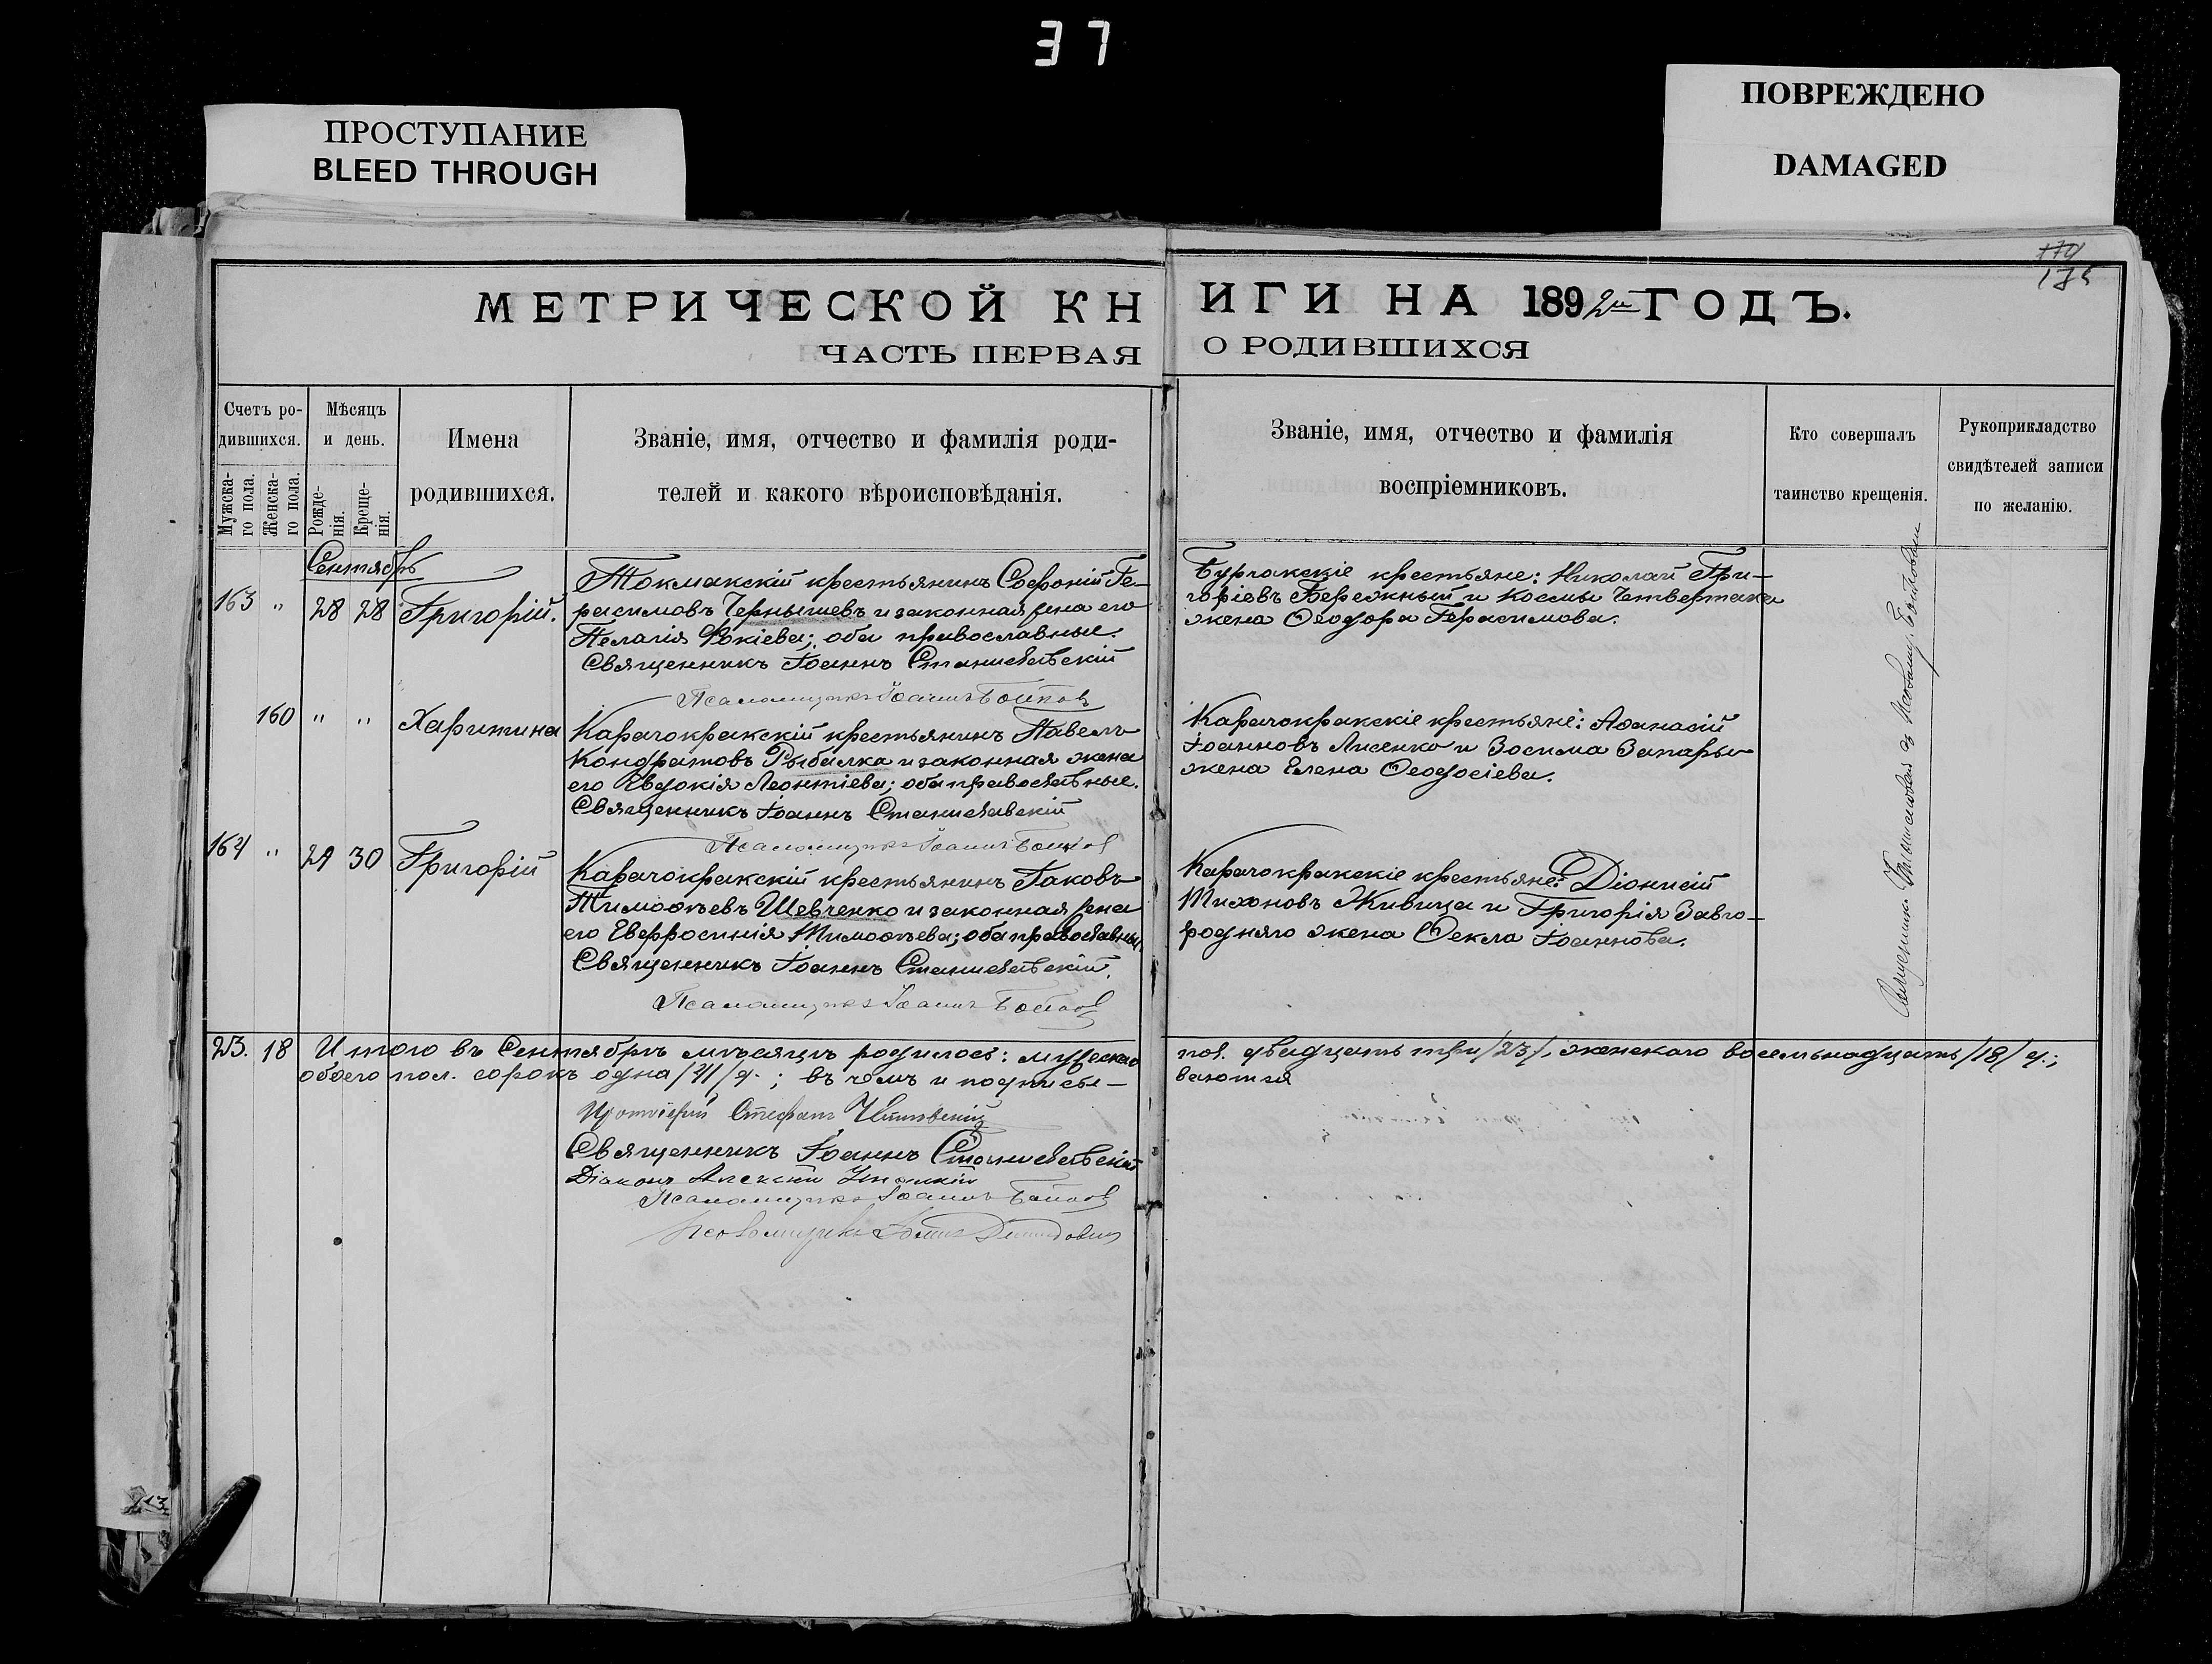 37
ПРОСТУПАНИЕ
BLEED THROUGH
ПОВРЕЖДЕНО
DAMAGED
174
175
МЕТРИЧЕСКОЙ КНИГИ НА 1892й ГОДЪ.
ЧАСТЬ ПЕРВАЯ О РОДИВШИХСЯ
Счетъ ро-
дившихся.
Мужска-
го пола.
Женска-
го пола.
Мѣсяцъ
и день.
Рожде-
нія.
Креще-
нія.
Имена
родившихся.
Званіе, имя, отчество и фамилія роди-
телей и какого вѣроисповѣданія.
Званіе, имя, отчество и фамилія
воспріемниковъ.
Кто совершалъ
таинство крещенія.
Рукоприкладство
свидѣтелей записи
по желанію.
Сентябрь
163 " 28 28 Григорій.
Токмакскій крестьянинъ Софроній Ге-
расимовъ Чернышевъ и законная жена его
Пелагія Фокіева; оба православные.
Священникъ Іоаннъ Станиславскій
Псаломщикъ Іоаннъ Бойков
Бурчакскіе крестьяне: Николай Гри-
горіевъ Бережный и Космы Четвертака
жена Ѳеодора Герасимова.
160 " " Харитина
Карачокракскій крестьянинъ Павелъ
Кондратовъ Рыбалка и законная жена
его Евдокія Леонтіева; оба православные.
Священникъ Іоаннъ Станиславскій
Псаломщикъ Іоаннъ Бойков
Карачокракскіе крестьяне: Аѳанасій
Іоанновъ Лисенко и Зосима Запары
жена Елена Ѳеодосіева.
164 " 29 30 Григорій
Карачокракскій крестьянинъ Іаковъ
Тимоѳѣевъ Шевченко и законная жена
его Евфросинія Тимоѳѣева; оба православны
Священникъ Іоаннъ Станиславскій.
Псаломщикъ Іоаннъ Бойков
Карачокракскіе крестьяне: Діонисій
Тихоновъ Живица и Григорія Завго-
родняго жена Ѳекла Іоаннова.
Священникъ Станиславскій съ псаломщ. Бойковым
23. 18 Итого въ Сентябрѣ мѣсяцѣ родилось: мужескаго пол. двадцать три /23/, женскаго восемьнадцать /18/ д.;
обоего пол. сорокъ одна /41/ д.; въ чемъ и подписы-
ваются
Протоіерей Стефанъ
Священникъ Іоаннъ Станиславскій
Діаконъ Алексій
Псаломщикъ Іоаннъ Бойков
Псаломщикъ